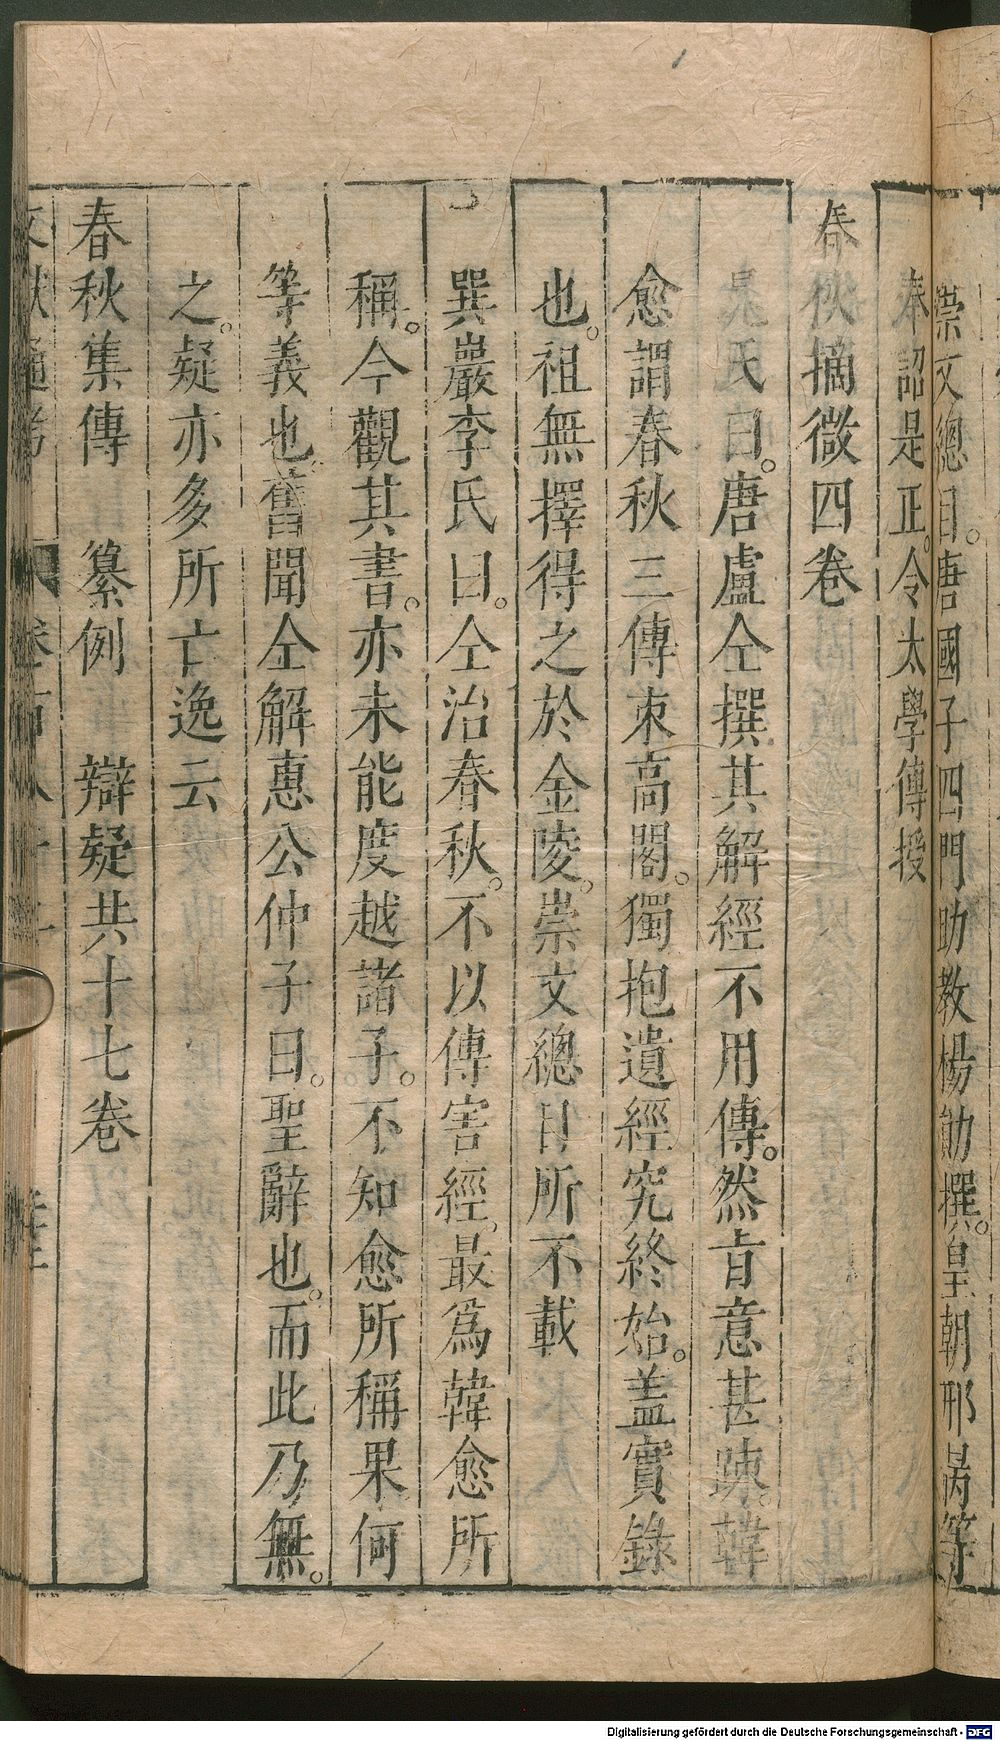 崇文總目。唐國子四門助教楊勛撰。皇朝邢昺等
奉詔是正。令太學傳授
春秋摘微四卷
晁氏曰。唐盧仝撰其解經不用傳。然旨意甚踈。韓
愈謂春秋三傳束高閣。獨抱遺經究終始。蓋實錄
也。祖無擇得之於金陵。崇文總目所不載
巽巖李氏曰。仝治春秋。不以傳害經。最爲韓愈所
稱。今觀其書。亦未能度越諸子。不知愈所稱果何
等義也。舊聞仝解惠公仲子曰。聖辭也。而此乃無。
之。疑亦多所亡逸云
春秋集傳 纂例 辯疑共十七卷
文獻通考 卷一百八十二
Digitalisierung gefördert durch die Deutsche Forschungsgemeinschaft - DFG